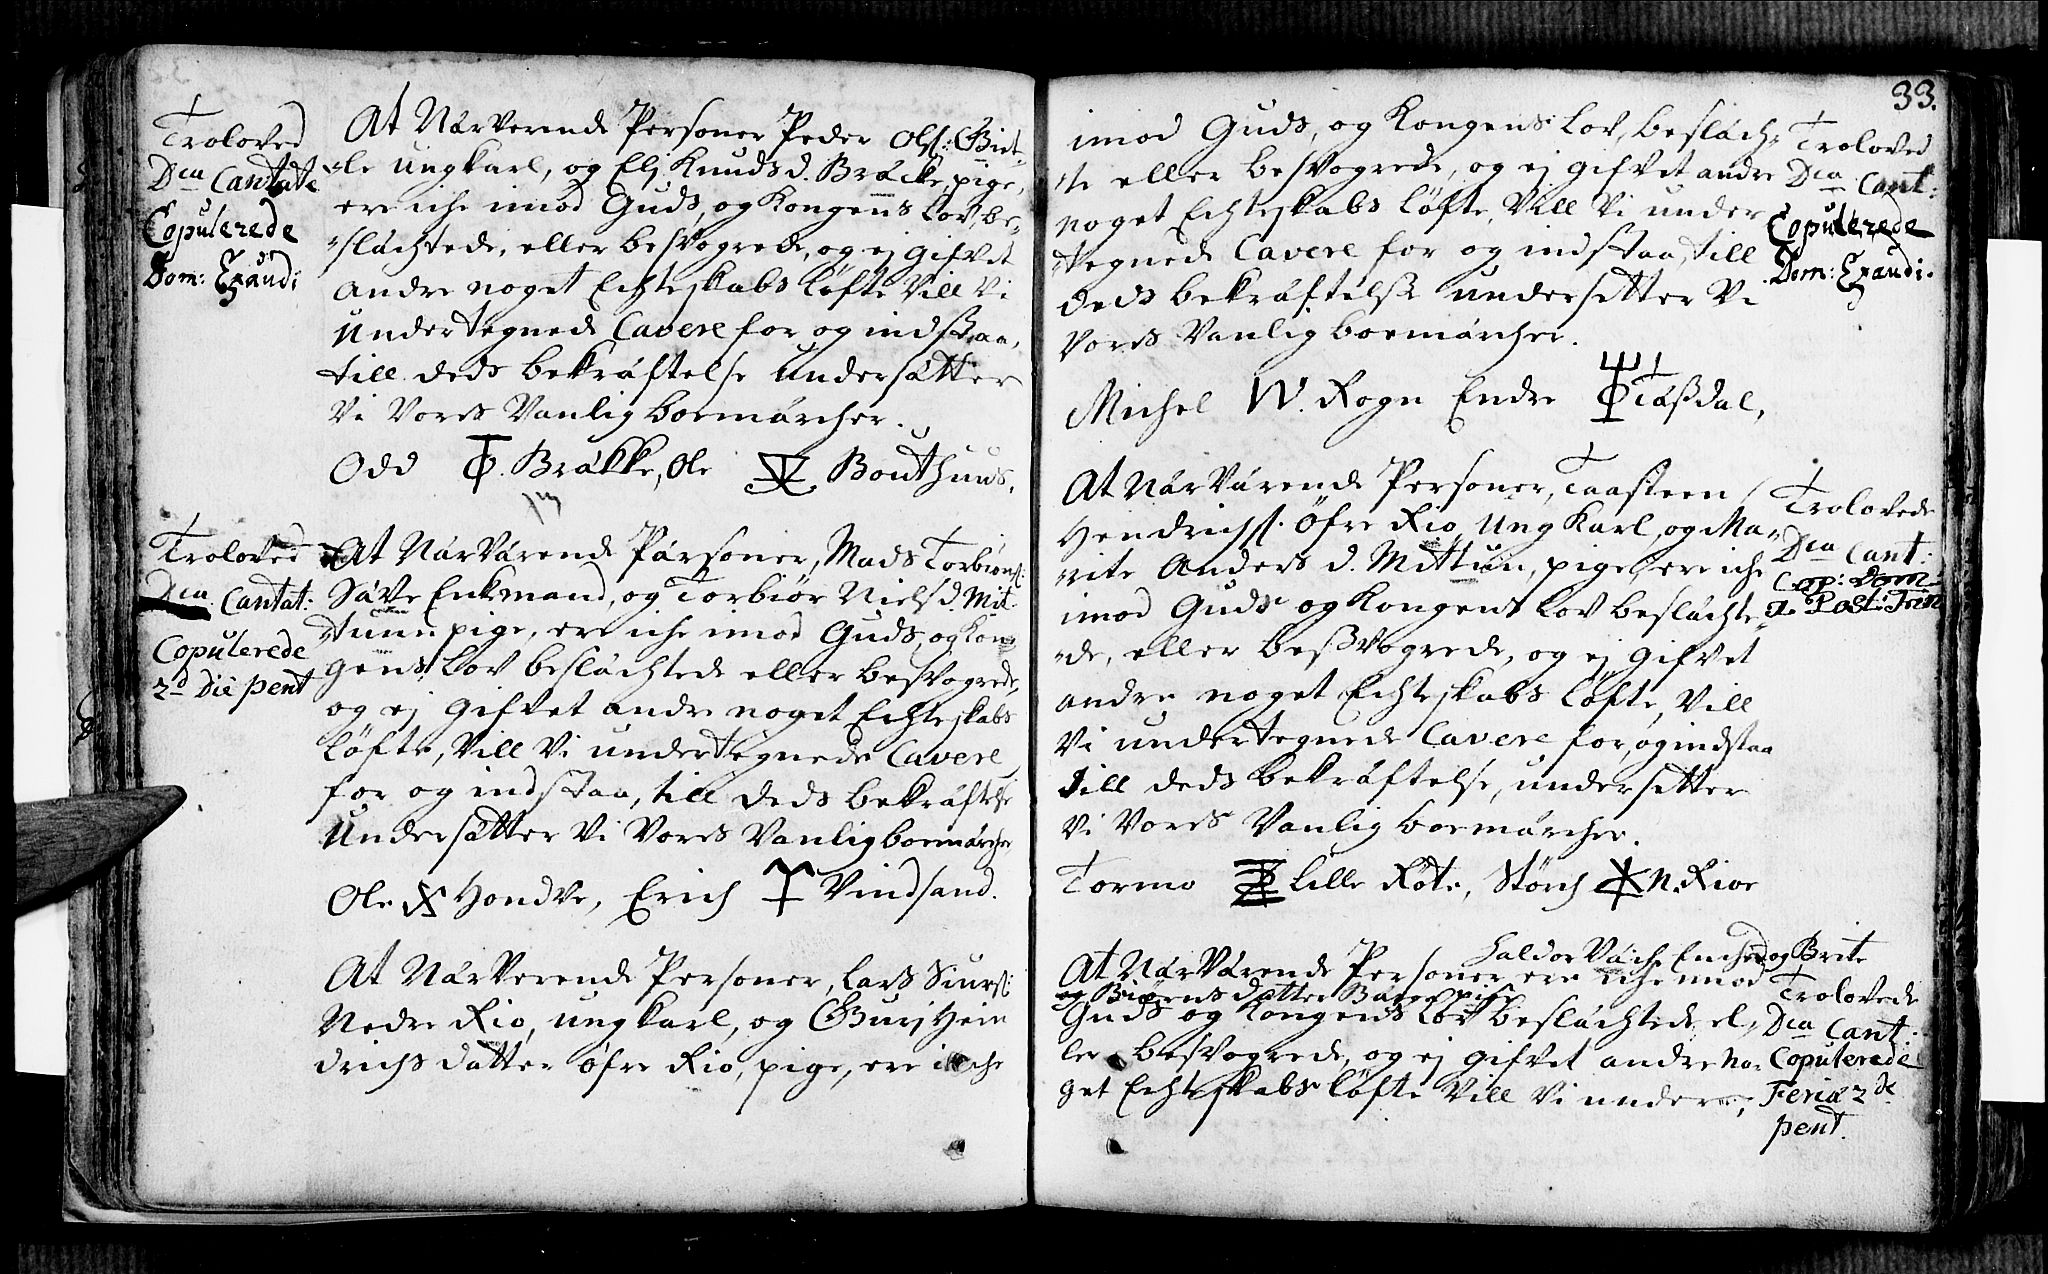 Troloved
Dca Cantate
Copulerede
Dom: Exaudi
At Nárverende Personer Peder Olss: Giet„
„le ungkarl, og Elj Knudsd. Bräcke, pige,
ere iche imod Guds, og Kongens lov, be„
„slächtede, eller besvogrede, og ej gifvet
andre noget Echteskabs löfte Vill Vi
undertegnede Cavere for og indstaa,
till deds bekräftelse undersätter
Vi Vores Vanlig boemärcher.
Odd . Bräkke, Ole Bouthuus,
Troloved
Dca. Cantat:
Copulerede
2d Die pent
At Närvärende Pärsoner, Mads Torbiönss:
Säve Enkemand, og Torbiör Nielsd. Mit„
„tunn pige, ere iche imod Guds, og Kon„
gens lov beslächtede eller besvogrede,
og ej gifvet andre noget Echteskabs
löfte, Vill Vi undertegnede Cavere
for og indstaa, till deds bekräftelse
undersätter Vi Vores Vanlig boemärcher
Ole Hondve, Erich Vindsand.
At Närverende Personer, Lars Siurss:
Nedre Rio, ungkarl, og Gurj Hein
drichs datter öfre Rio, pige, ere iche
33.
imod Guds, og Kongens lov, besläch„
„te eller besvogrede, og ej gifvet andre
noget Echteskabs löfte, Vill Vi under
„tegnede Cavere for og indstaa, till
deds bekräftelse undersetter Vi
Vores Vanlig boemärcher.
Troloved
Dca Cant:
Copulerede
Dom: Exaudi.
Michel W. Rogn Endre Täßdal,
At Närvärende Personer, Taasteen
Hendrichss. Öfre Rio, Ungkarl, og Ma„
„rite Anders d. Mittun, pige, ere iche
imod Guds og Kongens lov beslächte„
„de, eller beßvogrede, og ej gifvet
andre noget Echteskabs löfte, Vill
Vi undertegnede Cavere for, og indstaa
till deds bekräftelse, undersetter
Vi Vores Vanlig boemärcher.
Trolovede
Dca Cant:
Cop: Dom
1. Post: Trin
Tormo Lille Röte, Störch N. Rioe
Haldor og Brite
At Närvärende Personer ere iche imod
og Biörens datter pige
Guds og Kongens lov beslächtede el„
ler besvogrede, og ej gifvet andre no„
get Echteskabs löfte Vill Vi under„
Trolovede
Dca Cant:
Copulerede
Feria 2de
pent.